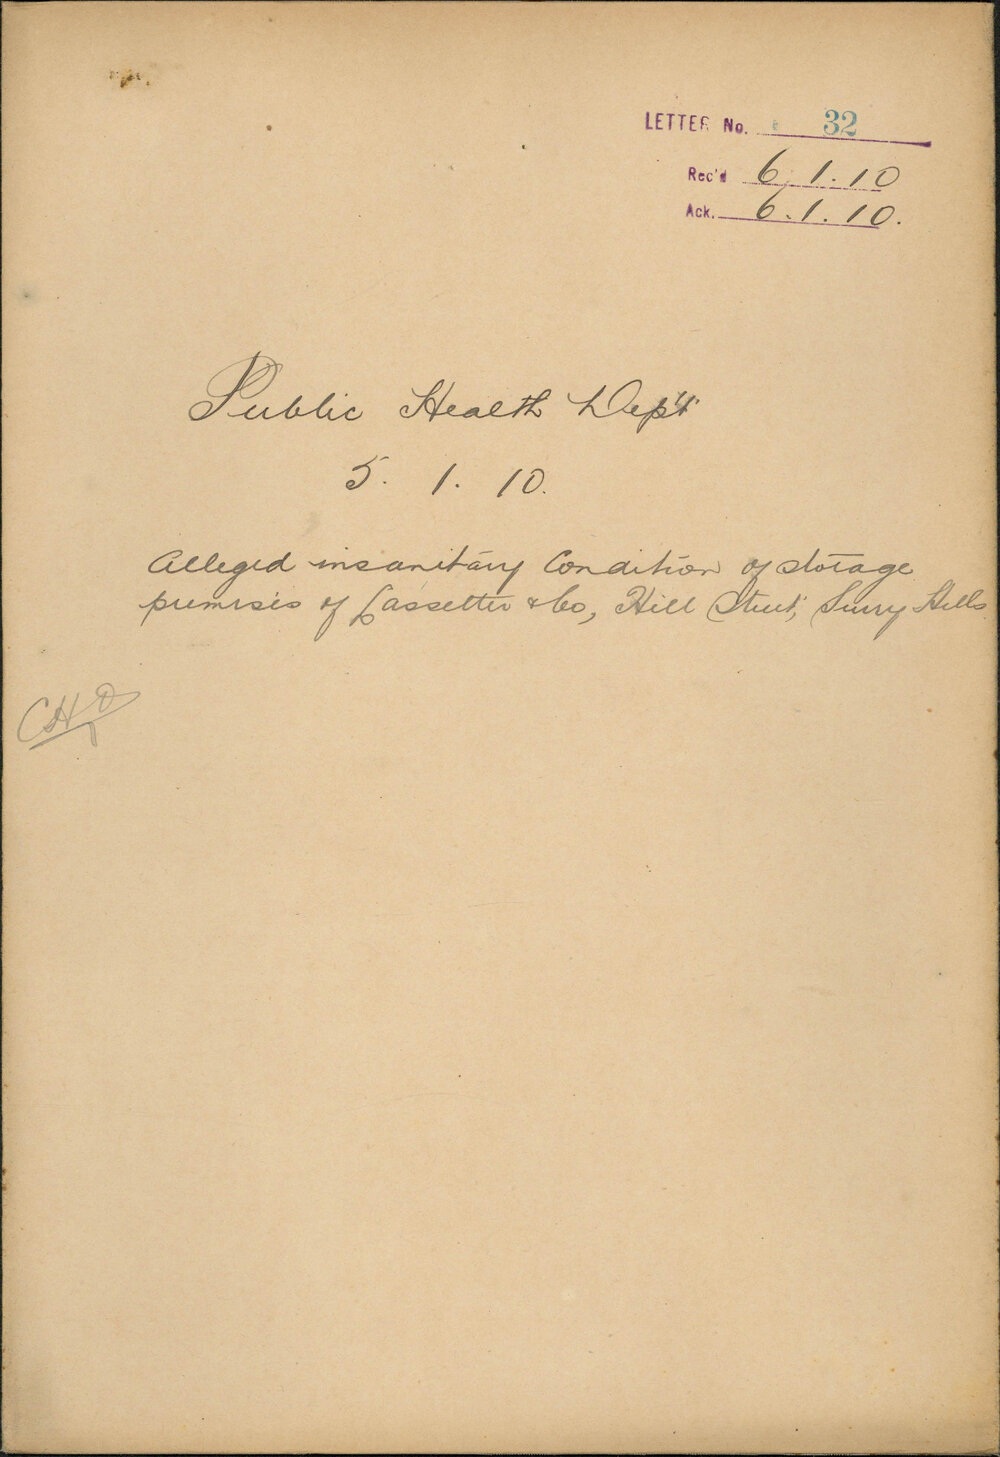 LETTER No. 32
Rec'd 6.1.10
Ack. 6.1.10.
Public Health Dep't
5. 1. 10.
Alleged insanitary Condition of storage
premises of Lassetter & Co, Hill Street, Surry Hills